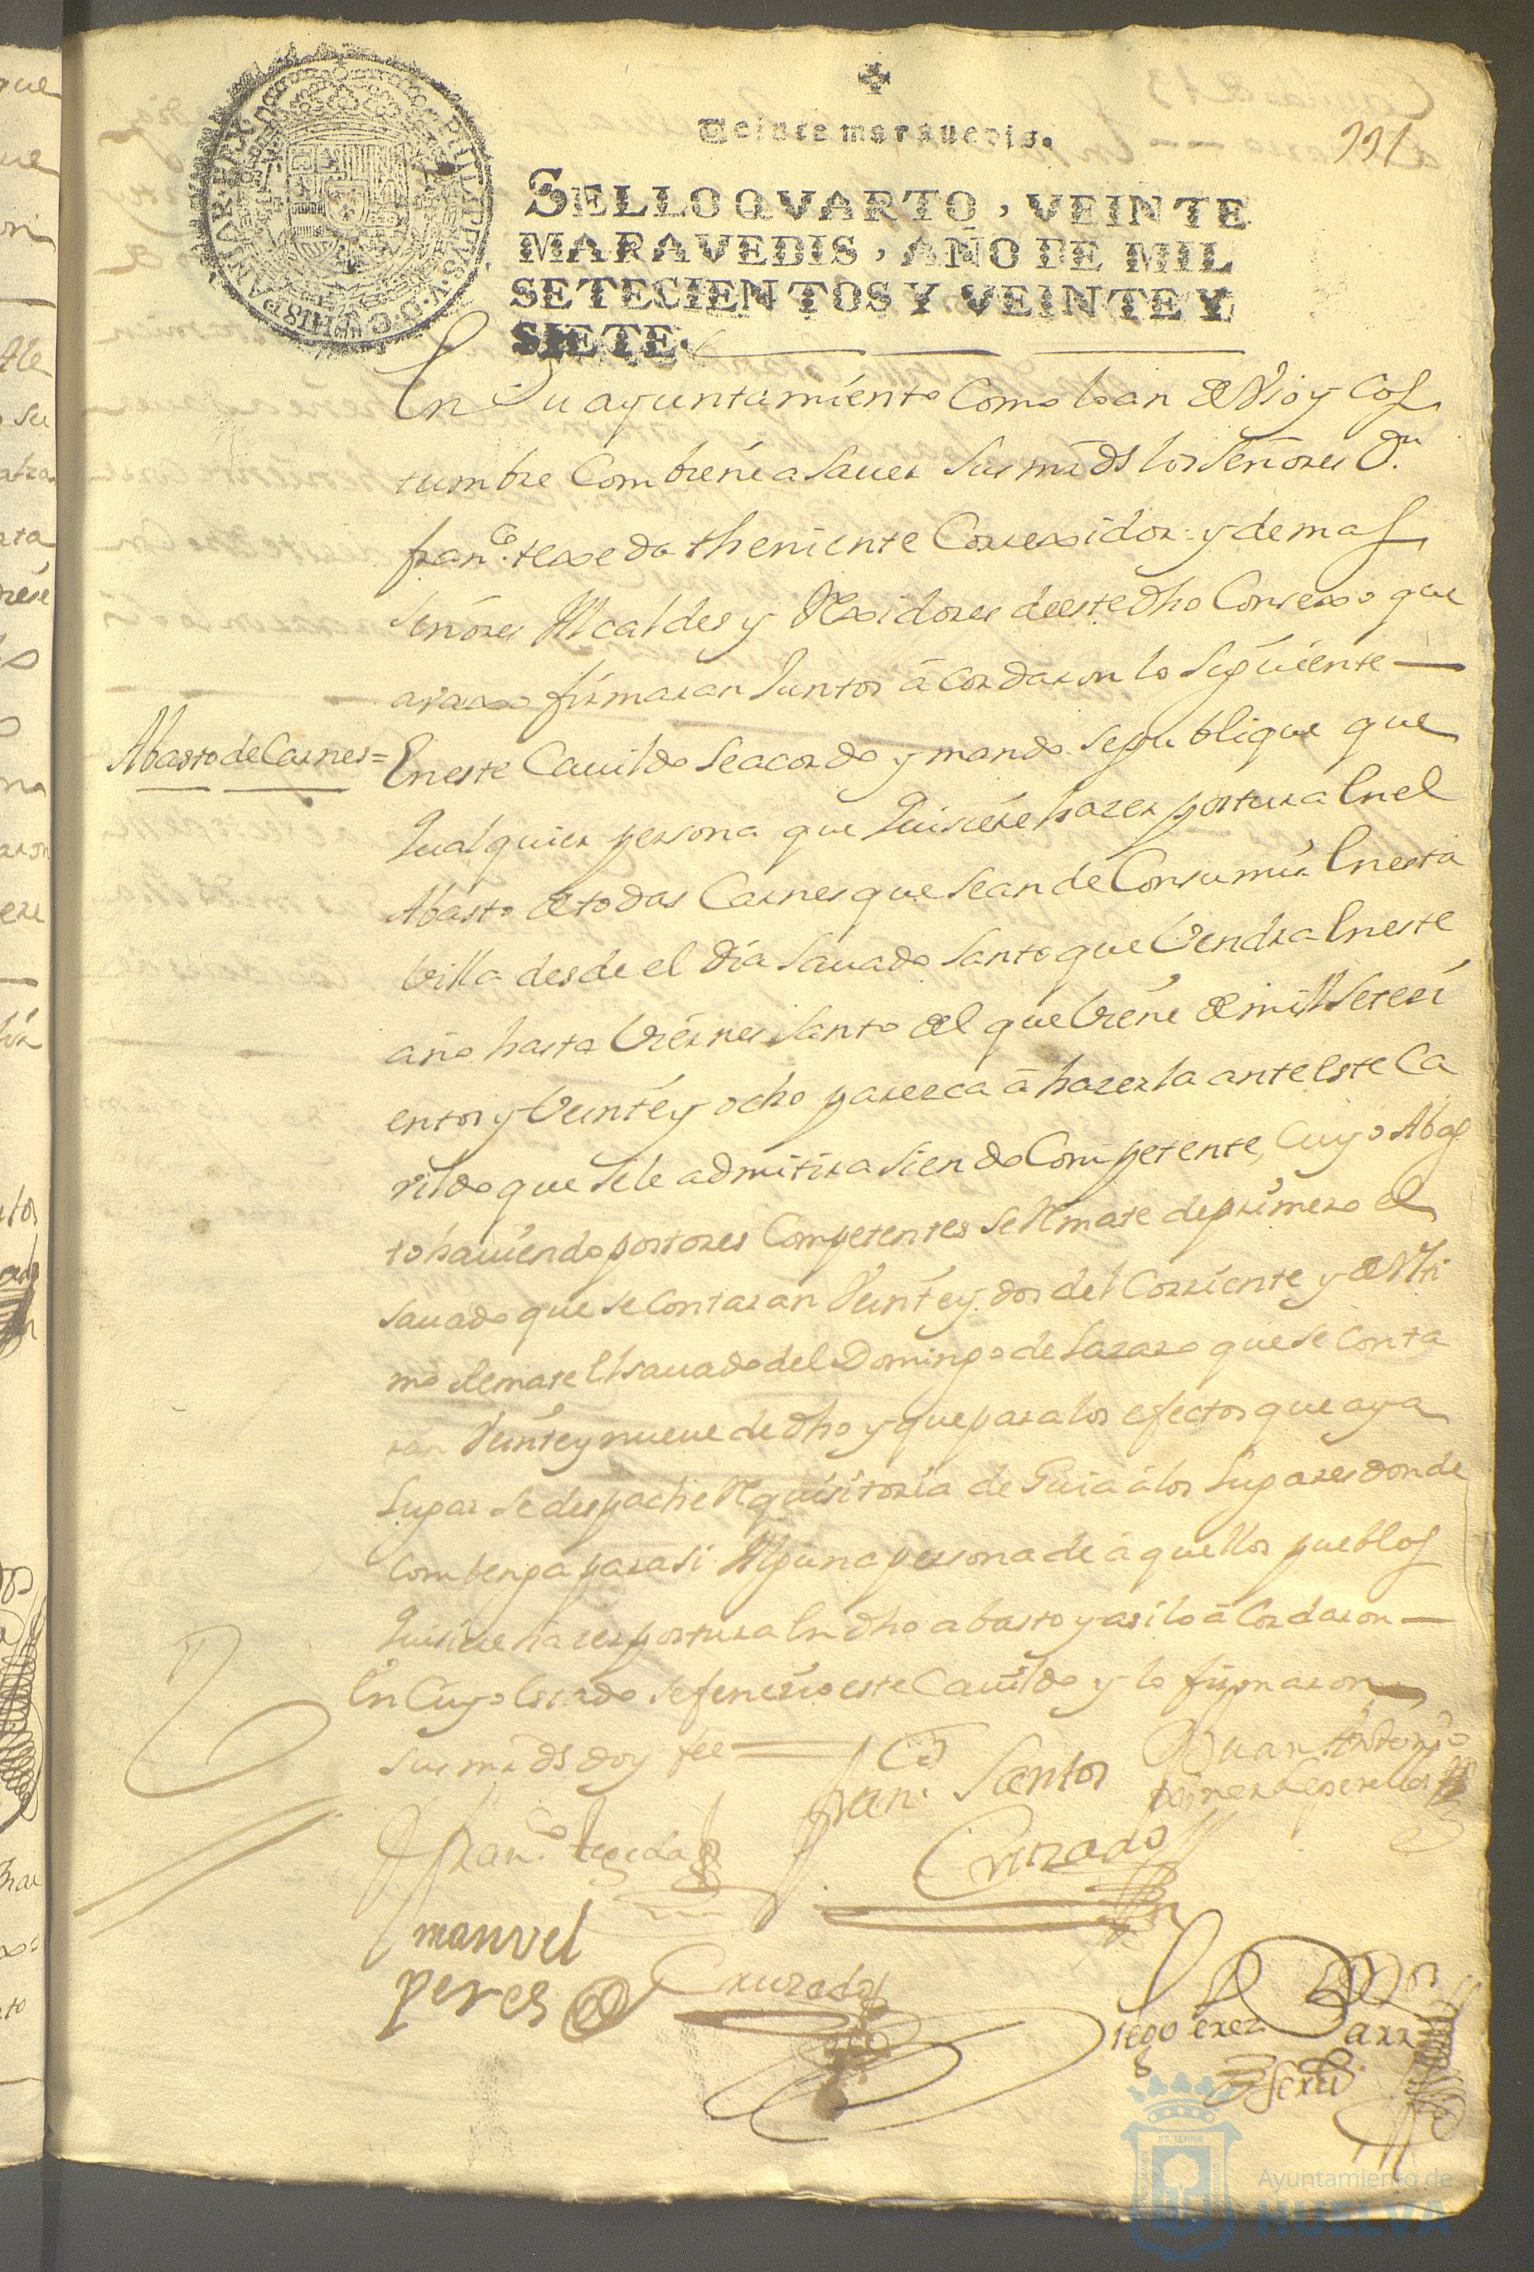 Veinte marauedis.
191
SELLO QVARTO, VEINTE
MARAVEDIS, AÑO DE MIL
SETECIENTOS Y VEINTE Y
SIETE.
PHILIPPUS. V. D. G. HISPANIAR. REX
En Su ayuntamiento Como lo an de Vso y Cos
tumbre Combiene a Sauer Sus mrds los Señores Dn
franco. texeda theniente Correxidor y demas
Señores Alcaldes y Rexidores de este dho Consexo que
avaxo firmaran Juntos acordaron lo Siguiente
Abasto de Carnes =
En este Cauildo Se acordo y mando Se publique que
qualquier persona que quisiere hazer postura En el
Abasto de todas Carnes que Sean de Consumir En esta
Villa desde el dia Sauado Santo que Vendra En este
año hasta Viernes Santo del que Viene de mill Seteci
entos y Veinte y ocho parezca á hazerla ante Este Ca
vildo que Se le admitira Siendo Competente, Cuyo Abas
to hauiendo postores Competentes Se Remate de primero el
Sauado que Se Contaran Veinte y dos del Corriente y de Vlti
mo Remate El Sauado del Domingo de Lazaro que Se Conta
ran Veinte y nueue de dho y que para los efectos que aya
Lugar Se despache Requisitoria de Guia á los Lugares donde
Combenga para Si Alguna persona de aquellos pueblos
quisiere hazer postura En dho abasto y asi lo acordaron
En Cuyo Estado Se fenecio este Cauildo y lo firmaron
Sus mrds doy fee
Franco. Santos
Cruzado
Juan Antonio
Franco. texeda
manvel
peres
Cruzado
Diego Perez Barr
Ayuntamiento de
HUELVA